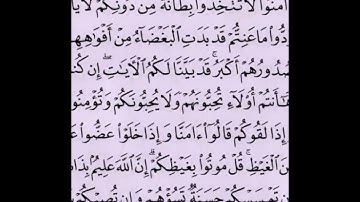 ءَامَنُوا۟ لَا تَتَّخِذُوا۟ بِطَانَةً مِّن دُونِكُمْ لَا
وَدُّوا۟ مَا عَنِتُّمْ قَدْ بَدَتِ ٱلْبَغْضَآءُ مِنْ أَفْوَٰهِهِمْ
صُدُورُهُمْ أَكْبَرُ ۚ قَدْ بَيَّنَّا لَكُمُ ٱلْـَٔايَـٰتِ ۖ إِن كُنتُمْ
هَـٰٓأَنتُمْ أُو۟لَآءِ تُحِبُّونَهُمْ وَلَا يُحِبُّونَكُمْ وَتُؤْمِنُونَ
إِذَا لَقُوكُمْ قَالُوٓا۟ ءَامَنَّا وَإِذَا خَلَوْا۟ عَضُّوا۟
مِنَ ٱلْغَيْظِ ۚ قُلْ مُوتُوا۟ بِغَيْظِكُمْ ۗ إِنَّ ٱللَّهَ عَلِيمٌۢ بِذَاتِ
إِن تَمْسَسْكُمْ حَسَنَةٌ تَسُؤْهُمْ وَإِن تُصِبْكُمْ